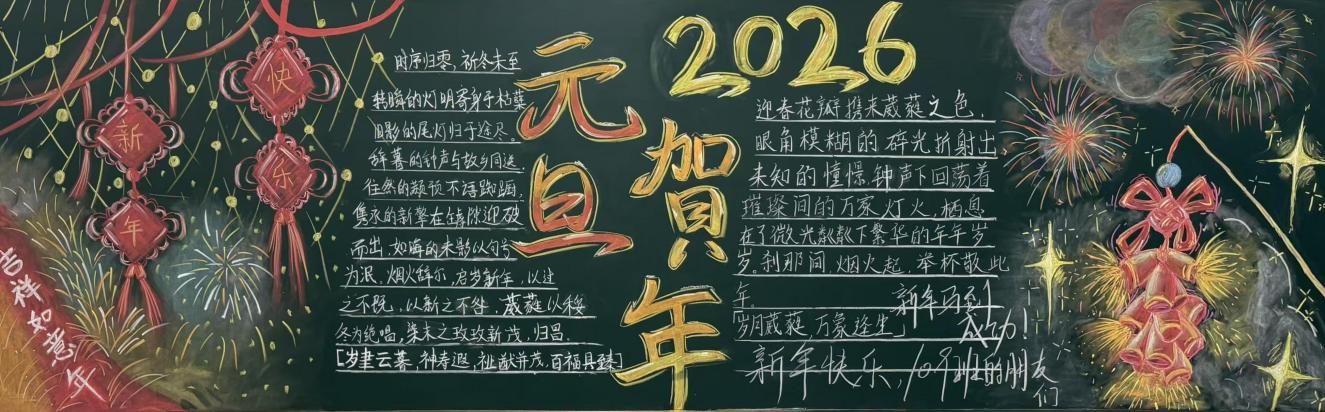 新年
快乐
吉祥如意年
时序归零,祈冬未至
转瞬的灯明寄身于枯蘖
旧影的尾灯归于途尽。
辞暮的钟声与故乡同返
往然的
不得踟蹰,
隽永的新擎在缝隙迎破
而出,如晦的末影以句号
为泯,烟火辞尔,启岁新年,以过
之不既,以新之不咎,葳蕤以绥
冬为绝唱,柒末之玫玫新茂,归昌。
[岁聿云暮,神寿遐,祉猷并茂,百福具臻]
元旦
2026
贺年
迎春花瓣携来葳蕤之色,
眼角模糊的碎光折射出
未知的憧憬钟声下回荡着
璀璨间的万家灯火,栖息
在了微光粼粼下繁华的年年岁
岁。刹那间,烟火起,举杯敬此
年
岁月葳蕤 万象逢生」
新年马到
成功!
新年快乐,109班的朋友
们